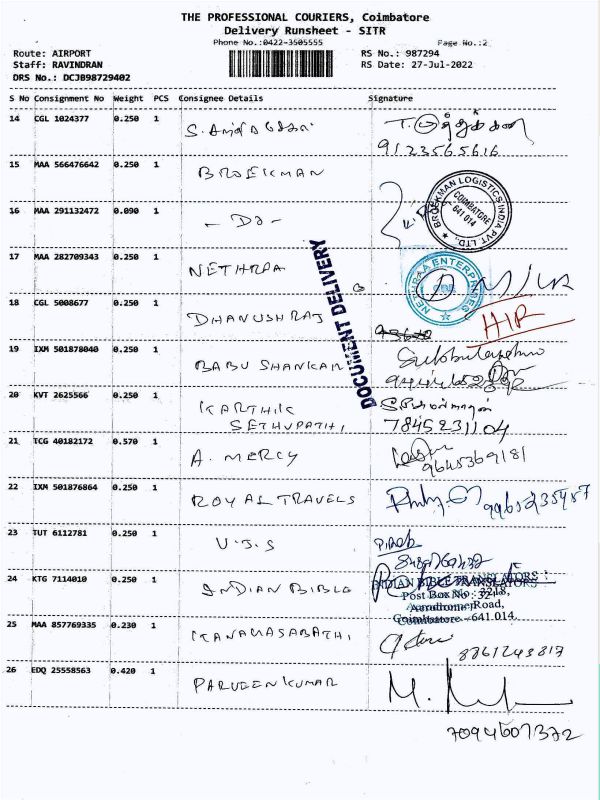 THE PROFESSIONAL COURIERS, Coimbatore
Delivery Runsheet - SITR
Phone No.:0422-3505555
Page No.:2
Route: AIRPORT
RS No.: 987294
Staff: RAVINDRAN
RS Date: 27-Jul-2022
DRS No.: DCJB98729402
S No Consignment No Weight PCS Consignee Details Signature
14 CGL 1024377 0.250 1
9123565616
15 MAA 566476642 0.250 1 BROEKMAN
BROEKMAN LOGISTICS INDIA PVT LTD.,
COIMBATORE
641 014
16 MAA 291132472 0.090 1 - Do -
17 MAA 282709343 0.250 1 NETHRAA
NETHRAA ENTERPRISES
CBE
DOCUMENT DELIVERY
18 CGL 5008677 0.250 1 DHANUSHRAJ
HIR
19 IXM 501878040 0.250 1 BABU SHANKAR
20 KVT 2625566 0.250 1 KARTHIK
SETHUPATHI,
7845231104
21 TCG 40182172 0.570 1 A. MERCY
9645369181
22 IXM 501876864 0.250 1 ROYAL TRAVELS
23 TUT 6112781 0.250 1 U.J.S
24 KTG 7114010 0.250 1 INDIAN BIBLE
INDIAN BIBLE TRANSLATORS
Post Box No : 3218,
Aerodrome Road,
Coimbatore - 641 014.
25 MAA 857769335 0.230 1 KANAGASABATHI,
8861243817
26 EDQ 25558563 0.420 1 PARVEEN KUMAR
7094607372